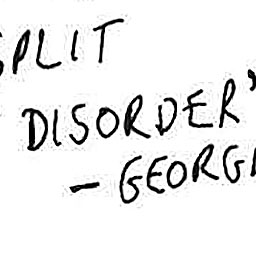 SPLIT
DISORDER'
- GEORG